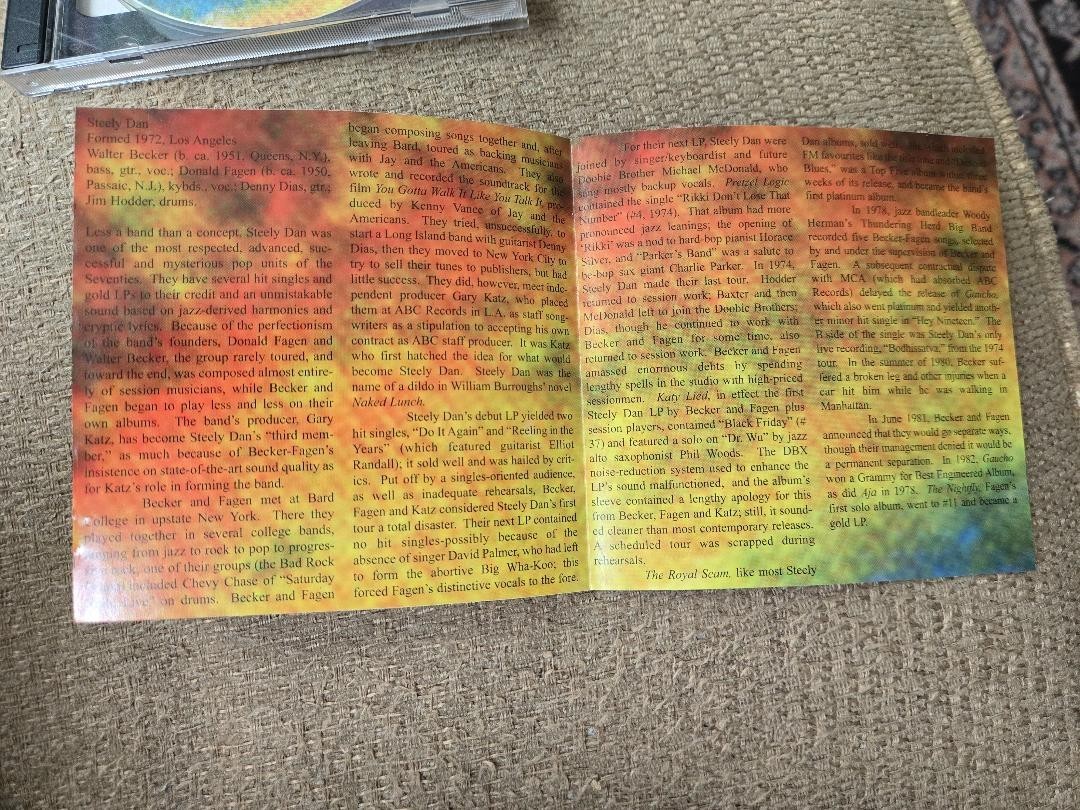 Steely Dan
Formed 1972, Los Angeles
Walter Becker (b. ca. 1951, Queens, N.Y.),
bass, gtr., voc.; Donald Fagen (b. ca. 1950,
Passaic, N.J.), kybds., voc.; Denny Dias, gtr.;
Jim Hodder, drums.
Less a band than a concept, Steely Dan was
one of the most respected, advanced, suc-
cessful and mysterious pop units of the
Seventies. They have several hit singles and
gold LPs to their credit and an unmistakable
sound based on jazz-derived harmonies and
cryptic lyrics. Because of the perfectionism
of the band's founders, Donald Fagen and
Walter Becker, the group rarely toured, and
toward the end, was composed almost entire-
ly of session musicians, while Becker and
Fagen began to play less and less on their
own albums. The band's producer, Gary
Katz, has become Steely Dan's "third mem-
ber," as much because of Becker-Fagen's
insistence on state-of-the-art sound quality as
for Katz's role in forming the band.
Becker and Fagen met at Bard
College in upstate New York. There they
played together in several college bands,
ranging from jazz to rock to pop to progres-
rock, one of their groups (the Bad Rock
included Chevy Chase of "Saturday
on drums. Becker and Fagen
began composing songs together and, after
leaving Bard, toured as backing musicians
with Jay and the Americans. They also
wrote and recorded the soundtrack for the
film You Gotta Walk It Like You Talk It, pro-
duced by Kenny Vance of Jay and the
Americans. They tried, unsuccessfully, to
start a Long Island band with guitarist Denny
Dias, then they moved to New York City to
try to sell their tunes to publishers, but had
little success. They did, however, meet inde-
pendent producer Gary Katz, who placed
them at ABC Records in L.A. as staff song-
writers as a stipulation to accepting his own
contract as ABC staff producer. It was Katz
who first hatched the idea for what would
become Steely Dan. Steely Dan was the
name of a dildo in William Burroughs' novel
Naked Lunch.
Steely Dan's debut LP yielded two
hit singles, "Do It Again" and "Reeling in the
Years" (which featured guitarist Elliot
Randall); it sold well and was hailed by crit-
ics. Put off by a singles-oriented audience,
as well as inadequate rehearsals, Becker,
Fagen and Katz considered Steely Dan's first
tour a total disaster. Their next LP contained
no hit singles-possibly because of the
absence of singer David Palmer, who had left
to form the abortive Big Wha-Koo; this
forced Fagen's distinctive vocals to the fore.
For their next LP, Steely Dan were
joined by singer/keyboardist and future
Doobie Brother Michael McDonald, who
sang mostly backup vocals. Pretzel Logic
contained the single "Rikki Don't Lose That
Number" (#4, 1974). That album had more
pronounced jazz leanings; the opening of
"Rikki" was a nod to hard-bop pianist Horace
Silver, and "Parker's Band" was a salute to
be-bop sax giant Charlie Parker. In 1974,
Steely Dan made their last tour. Hodder
returned to session work; Baxter and then
McDonald left to join the Doobie Brothers;
Dias, though he continued to work with
Becker and Fagen for some time, also
returned to session work. Becker and Fagen
amassed enormous debts by spending
lengthy spells in the studio with high-priced
sessionmen. Katy Lied, in effect the first
Steely Dan LP by Becker and Fagen plus
session players, contained "Black Friday" (#
37) and featured a solo on "Dr. Wu" by jazz
alto saxophonist Phil Woods. The DBX
noise-reduction system used to enhance the
LP's sound malfunctioned, and the album's
sleeve contained a lengthy apology for this
from Becker, Fagen and Katz; still, it sound-
ed cleaner than most contemporary releases.
A scheduled tour was scrapped during
rehearsals.
The Royal Scam, like most Steely
Dan albums, sold
FM favourites like
Blues," was a Top Five album within three
weeks of its release, and became the band's
first platinum album.
In 1978, jazz bandleader Woody
Herman's Thundering Herd Big Band
recorded five Becker-Fagen songs, selected
by and under the supervision of Becker and
Fagen. A subsequent contractual dispute
with MCA (which had absorbed ABC
Records) delayed the release of Gaucho,
which also went platinum and yielded anoth-
er minor hit single in "Hey Nineteen." The
B side of the single was Steely Dan's only
live recording, "Bodhisattva," from the 1974
tour. In the summer of 1980, Becker suf-
fered a broken leg and other injuries when a
car hit him while he was walking in
Manhattan.
In June 1981, Becker and Fagen
announced that they would go separate ways,
though their management denied it would be
a permanent separation. In 1982, Gaucho
won a Grammy for Best Engineered Album,
as did Aja in 1978. The Nightfly, Fagen's
first solo album, went to #11 and became a
gold LP.